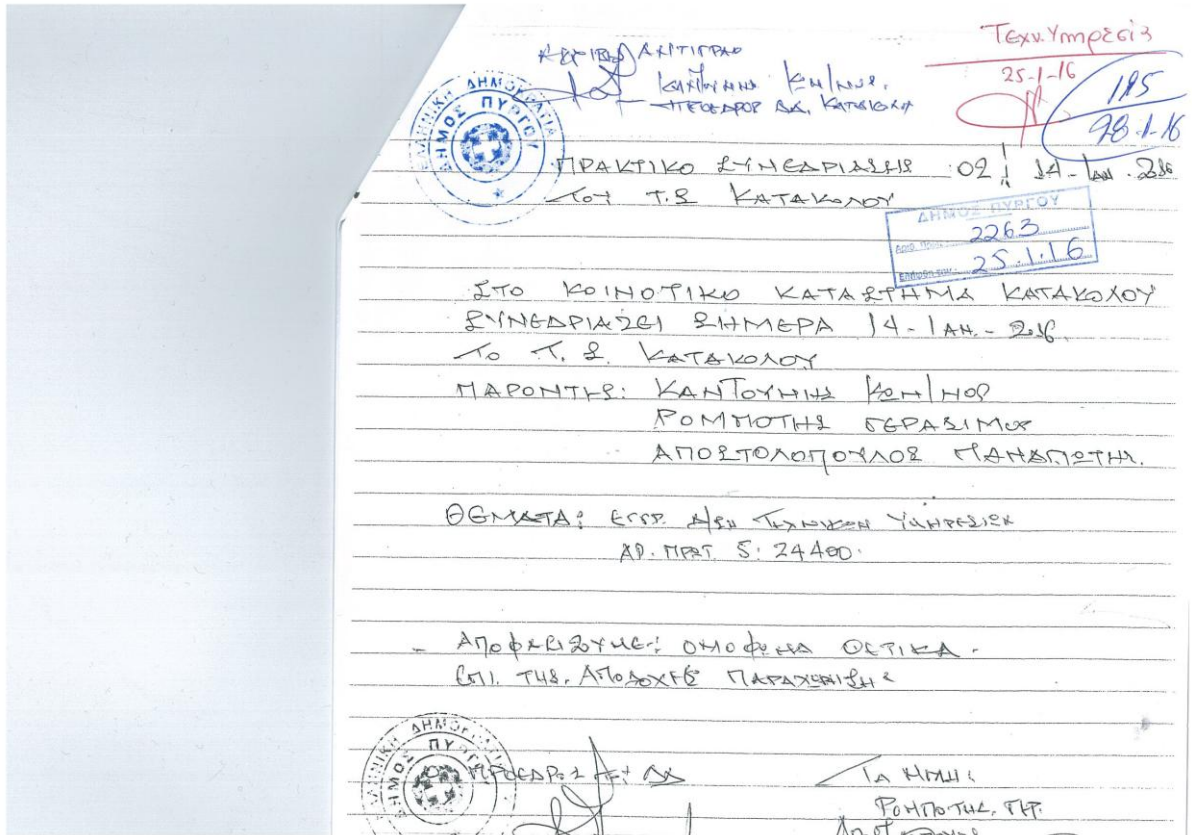 Τεχν. Υπηρεσία
25-1-16
ΑΚΡΙΒΕΣ ΑΝΤΙΓΡΑΦΟ
ΚΑΝΤΟΥΝΗΣ ΚΩΝ/ΝΟΣ.
ΠΡΟΕΔΡΟΣ
195
28-1-16
ΕΛΛΗΝΙΚΗ ΔΗΜΟΚΡΑΤΙΑ
ΔΗΜΟΣ ΠΥΡΓΟΥ
ΠΡΑΚΤΙΚΟ ΣΥΝΕΔΡΙΑΣΗΣ 02 14-ΙΑΝ. 2016
ΤΟΥ Τ.Σ ΚΑΤΑΚΟΛΟΥ
ΔΗΜΟΣ ΠΥΡΓΟΥ
Αριθ. Πρωτ. 2263
25.1.16
ΣΤΟ ΚΟΙΝΟΤΙΚΟ ΚΑΤΑΣΤΗΜΑ ΚΑΤΑΚΟΛΟΥ
ΣΥΝΕΔΡΙΑΖΕΙ ΣΗΜΕΡΑ 14-ΙΑΝ.-2016.
ΤΟ Τ.Σ. ΚΑΤΑΚΟΛΟΥ
ΠΑΡΟΝΤΗΣ: ΚΑΝΤΟΥΝΗΣ ΚΩΝ/ΝΟΣ
ΡΟΜΠΟΤΗΣ ΓΕΡΑΣΙΜΟΣ
ΑΠΟΣΤΟΛΟΠΟΥΛΟΣ ΠΑΝΑΓΙΩΤΗΣ.
ΘΕΜΑΤΑ: ΕΓΓΡ. Δ/ΣΗ ΤΕΧΝΙΚΩΝ ΥΠΗΡΕΣΙΩΝ
ΑΡ. ΠΡΩΤ. 5: 24400.
- ΑΠΟΦΑΣΙΖΟΥΜΕ: ΟΜΟΦΩΝΑ ΘΕΤΙΚΑ.
ΕΠΙ. ΤΗΣ. ΑΠΟΔΟΧΗΣ ΠΑΡΑΧΩΡΙΣΗΣ
ΕΛΛΗΝΙΚΗ ΔΗΜΟΚΡ
ΔΗΜΟΣ ΠΥΡΓΟΥ
Ο ΠΡΟΕΔΡΟΣ
ΤΑ ΜΕΛΗ:
ΡΟΜΠΟΤΗΣ. ΓΕΡ.